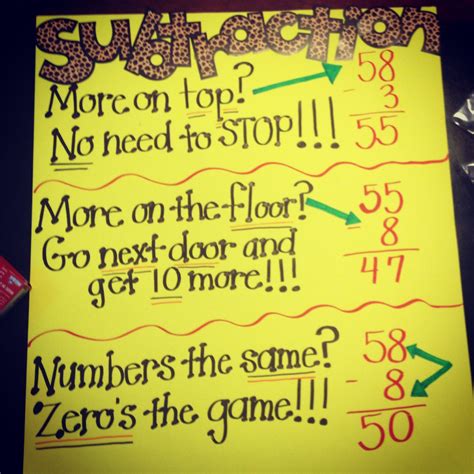 Subtraction
More on top?
No need to STOP!!!
58
- 3
55
More on the floor?
Go next door and
get 10 more!!!
55
- 8
47
Numbers the same?
Zero's the game!!!
58
- 8
50